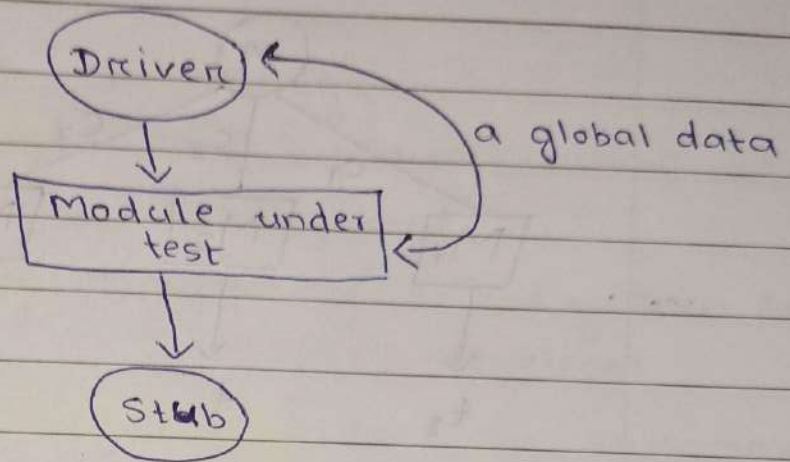 Driver
a global data
Module under
test
Stub